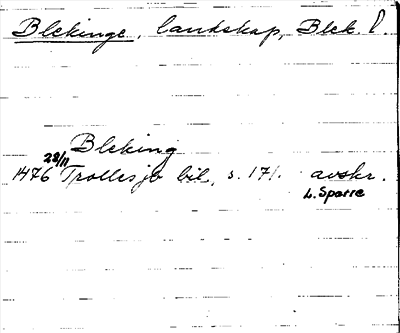 Blekinge, landskap, Blek. l.
Bleking
23/11
1476 Trolles jb bil, s. 171. avskr.
L. Sparre